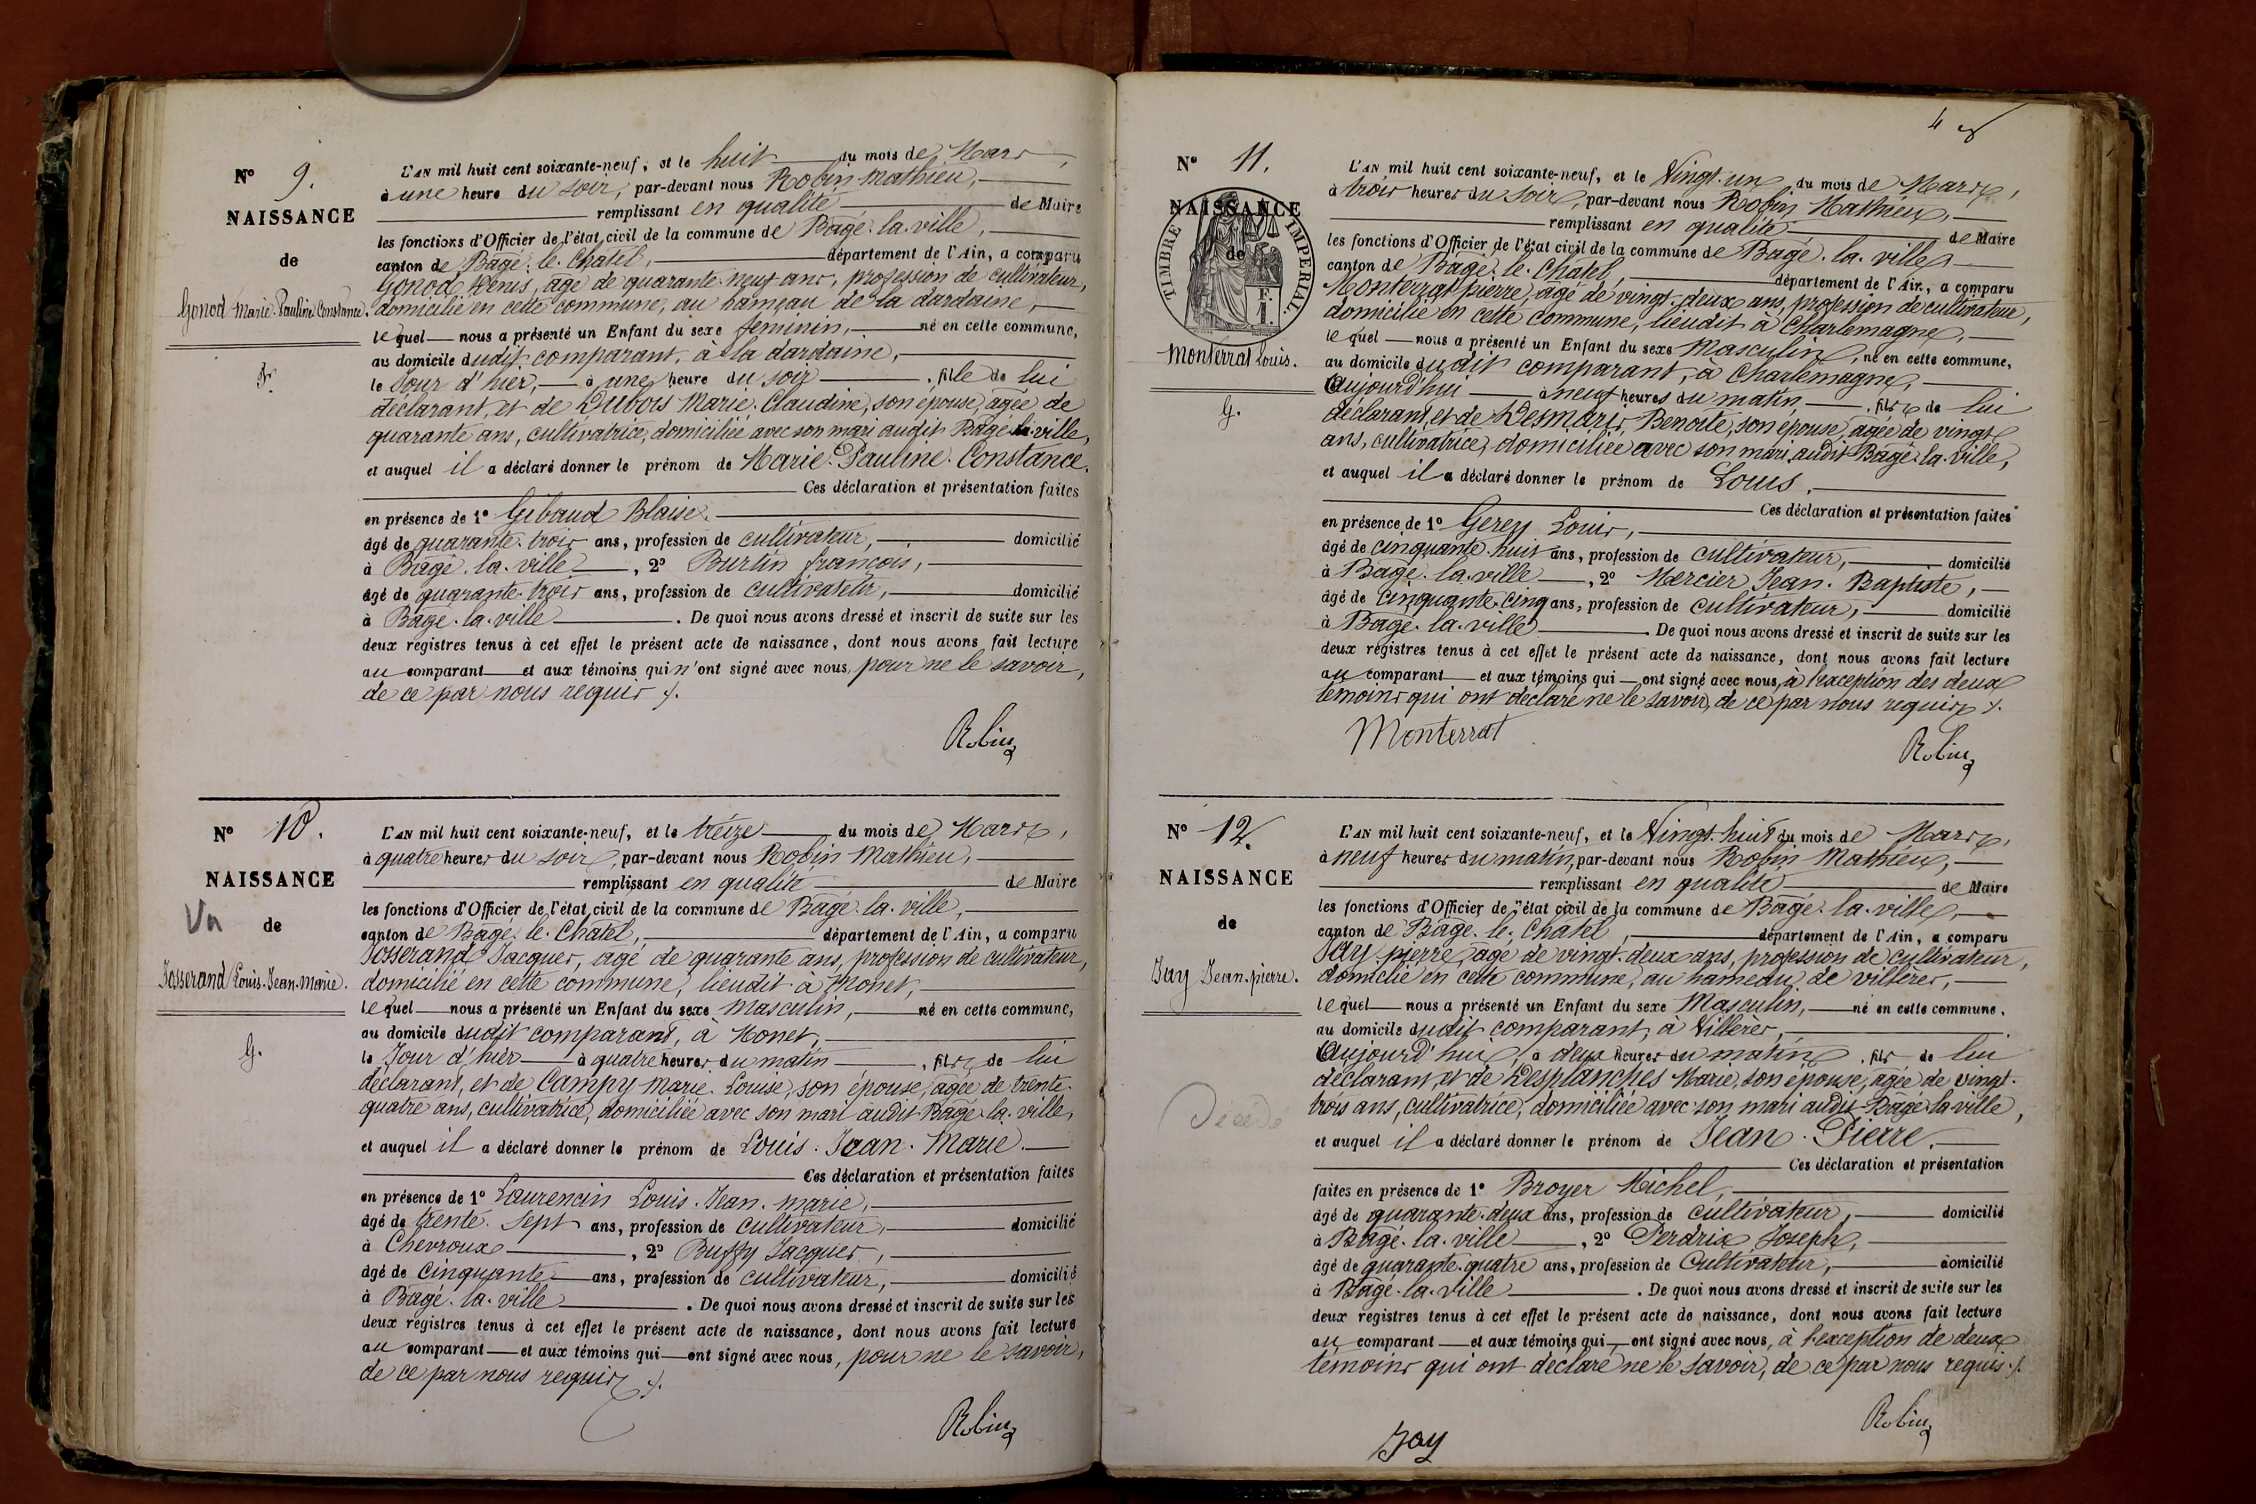 N° 9.
NAISSANCE
de
Gonod Marie-Pauline-Constance.
F.
L'AN mil huit cent soixante-neuf, et le huit du mois de Mars,
à une heure du soir, par-devant nous Robin Mathieu,
remplissant en qualité de Maire
les fonctions d'Officier de l'état civil de la commune de Bagé-la-ville,
canton de Bagé-le-Chatel, département de l'Ain, a comparu
Gonod Denis, âgé de quarante-neuf ans, profession de cultivateur,
domicilié en cette commune, au hameau de la dardaine,
lequel nous a présenté un Enfant du sexe féminin, né en cette commune,
au domicile dudit comparant, à la dardaine,
le Jour d'hier, à une heure du soir, fille de lui
déclarant, et de Dubois Marie-Claudine, son épouse, agée de
quarante ans, cultivatrice, domiciliée avec son mari audit Bagé-la-ville,
et auquel il a déclaré donner le prénom de Marie-Pauline-Constance.
Ces déclaration et présentation faites
en présence de 1° Gibaud Blaise,
âgé de quarante-trois ans, profession de cultivateur, domicilié
à Bagé-la-ville, 2° Burtin françois,
âgé de quarante-trois ans, profession de cultivateur, domicilié
à Bagé-la-ville. De quoi nous avons dressé et inscrit de suite sur les
deux registres tenus à cet effet le présent acte de naissance, dont nous avons fait lecture
au comparant et aux témoins qui n'ont signé avec nous, pour ne le savoir,
de ce par nous requis ./.
Robin
N° 10.
NAISSANCE
Vu
de
Josserand Louis-Jean-Marie.
G.
L'AN mil huit cent soixante-neuf, et le treize du mois de Mars,
à quatre heures du soir, par-devant nous Robin Mathieu,
remplissant en qualité de Maire
les fonctions d'Officier de l'état civil de la commune de Bagé-la-ville,
canton de Bagé-le-Chatel, département de l'Ain, a comparu
Josserand Jacques, agé de quarante ans, profession de cultivateur,
domicilié en cette commune, lieudit à Monet,
lequel nous a présenté un Enfant du sexe masculin, né en cette commune,
au domicile dudit comparant, à Monet,
le Jour d'hier à quatre heures du matin, fils de lui
déclarant, et de Campy Marie-Louise, son épouse, agée de trente-
quatre ans, cultivatrice, domiciliée avec son mari audit Bagé-la-ville,
et auquel il a déclaré donner le prénom de Louis-Jean-Marie.
Ces déclaration et présentation faites
en présence de 1° Laurencin Louis-Jean-marie,
âgé de trente-sept ans, profession de cultivateur, domicilié
à Chevroux, 2° Buffy Jacques,
âgé de Cinquante ans, profession de cultivateur, domicilié
à Bagé-la-ville. De quoi nous avons dressé et inscrit de suite sur les
deux registres tenus à cet effet le présent acte de naissance, dont nous avons fait lecture
au comparant et aux témoins qui ont signé avec nous, pour ne le savoir,
de ce par nous requis ./.
Robin
4
N° 11.
NAISSANCE
de
TIMBRE IMPERIAL
F.
1.
Monterrat Louis.
G.
L'AN mil huit cent soixante-neuf, et le Vingt-un du mois de Mars,
à trois heures du soir, par-devant nous Robin Mathieu,
remplissant en qualité de Maire
les fonctions d'Officier de l'état civil de la commune de Bagé-la-ville,
canton de Bagé-le-Chatel, département de l'Ain, a comparu
Monterrat pierre, âgé de vingt-deux ans, profession de cultivateur,
domicilié en cette commune, lieudit à Charlemagne,
lequel nous a présenté un Enfant du sexe Masculin, né en cette commune,
au domicile dudit comparant, à Charlemagne,
Aujourd'hui à neuf heures du matin, fils de lui
déclarant, et de Desmaris Benoite, son épouse, agée de vingt
ans, cultivatrice, domiciliée avec son mari audit Bagé-la-ville,
et auquel il a déclaré donner le prénom de Louis.
Ces déclaration et présentation faites
en présence de 1° Gerey Louis,
âgé de cinquante-huit ans, profession de cultivateur, domicilié
à Bagé-la-ville, 2° Mercier Jean-Baptiste,
âgé de Cinquante-cinq ans, profession de cultivateur, domicilié
à Bagé-la-ville. De quoi nous avons dressé et inscrit de suite sur les
deux registres tenus à cet effet le présent acte de naissance, dont nous avons fait lecture
au comparant et aux témoins qui ont signé avec nous, à l'exception des deux
témoins qui ont déclaré ne le savoir, de ce par nous requis ./.
Monterrat
Robin
N° 12.
NAISSANCE
de
Jay Jean-pierre.
Décédé
L'AN mil huit cent soixante-neuf, et le Vingt-huit du mois de Mars,
à neuf heures du matin, par-devant nous Robin Mathieu,
remplissant en qualité de Maire
les fonctions d'Officier de l'état civil de la commune de Bagé-la-ville,
canton de Bagé-le-Chatel, département de l'Ain, a comparu
Jay pierre, âgé de vingt-deux ans, profession de cultivateur,
domicilié en cette commune, au hameau de villères,
lequel nous a présenté un Enfant du sexe Masculin, né en cette commune,
au domicile dudit comparant, à Villères,
Aujourd'hui, à deux heures du matin, fils de lui
déclarant, et de Desplanches Marie, son épouse, agée de vingt-
trois ans, cultivatrice, domiciliée avec son mari audit Bagé-la-ville,
et auquel il a déclaré donner le prénom de Jean-Pierre.
Ces déclaration et présentation
faites en présence de 1° Broyer Michel,
âgé de quarante-deux ans, profession de cultivateur, domicilié
à Bagé-la-ville, 2° Perdrix Joseph,
âgé de quarante-quatre ans, profession de Cultivateur, domicilié
à Bagé-la-ville. De quoi nous avons dressé et inscrit de suite sur les
deux registres tenus à cet effet le présent acte de naissance, dont nous avons fait lecture
au comparant et aux témoins qui ont signé avec nous, à l'exception de deux
témoins qui ont déclaré ne le savoir, de ce par nous requis ./.
Jay
Robin